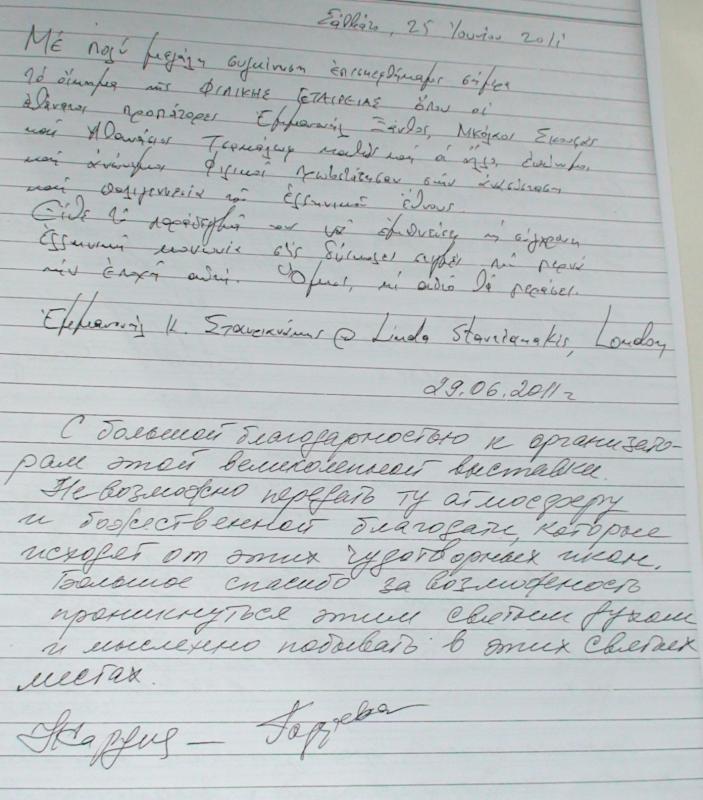 Σάββατο, 25 Ἰουνίου 2011
Μέ πολύ μεγάλη συγκίνηση ἐπισκεφθήκαμε σήμερα
τό οἴκημα τῆς ΦΙΛΙΚΗΣ ΕΤΑΙΡΕΙΑΣ ὅπου οἱ
ἀθάνατοι προπάτορες Ἐμμανουήλ Ξάνθος, Νικόλαος Σκουφᾶς
καί Ἀθανάσιος Τσακάλωφ καθώς καί οἱ ἄλλοι ἐπώνυμοι
καί ἀνώνυμοι Φιλικοί στήν ἀνάσταση
καί παλιγγενεσία τοῦ ἑλληνικοῦ ἔθνους.
Εἴθε τό παράδειγμά των νά ἐμπνεύσει τή σύγχρονη
ἑλληνική κοινωνία στίς δύσκολες πού περνᾶ
τήν ἐποχή αὐτή. Ὅμως, κι αὐτό θά περάσει.
Ἐμμανουήλ Κ. Σταυριανάκης @ Linda Stavrianakis, London
29.06.2011 г
С большой благодарностью к организато-
рам этой великолепной выставки.
Невозможно передать ту атмосферу
и божественной благодати, которые
исходят от этих чудотворных икон.
Большое спасибо за возможность
проникнуться этим святым духом
и мысленно побывать в этих святых
местах.